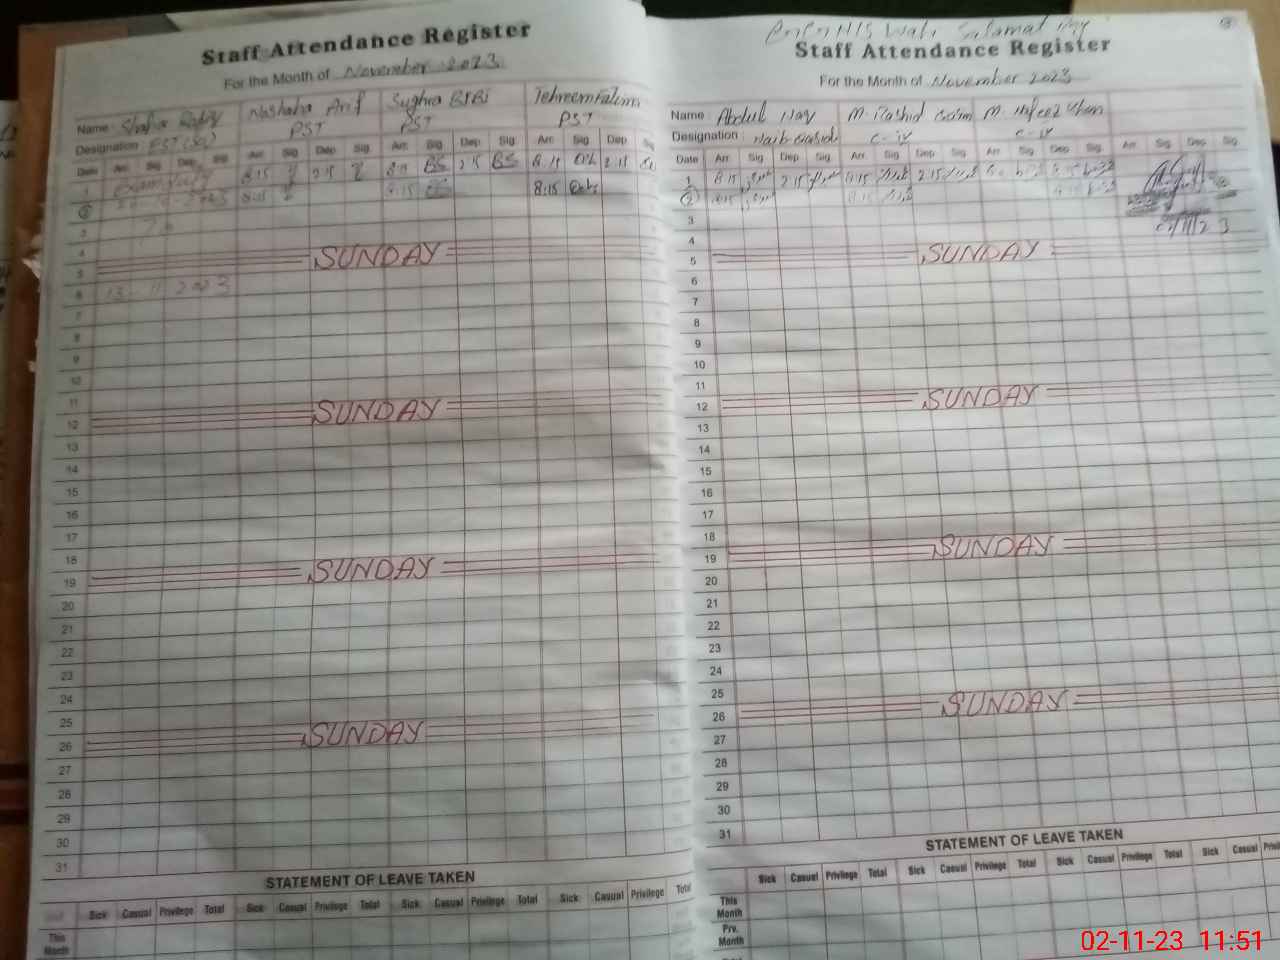 Staff Attendance Register
For the Month of November 2023
Name: Nashaba Arif Sughra BiBi
Designation: PST PST PST
Date Arr. Sig. Dep. Sig. Arr. Sig. Dep. Sig. Arr. Sig. Dep Sig. Arr. Sig. Dep Sig.
1 8:15 2 15 BS 2 15 BS 8:15 2:15
2 8:15 8:15
3
4
5 SUNDAY
6 13-11-2023
7
8
9
10
11
12 SUNDAY
13
14
15
16
17
18
19 SUNDAY
20
21
22
23
24
25
26 SUNDAY
27
28
29
30
31
STATEMENT OF LEAVE TAKEN
Sick Casual Privilege Total Sick Casual Privilege Total Sick Casual Privilege Total Sick Casual Privilege Total
This Month
Salamat
Staff Attendance Register
For the Month of November 2023
Name: Abdul M. Rashid M. Khan
Designation: Naib C-iv C-iv
Date Arr. Sig. Dep Sig. Arr. Sig. Dep Sig. Arr. Sig. Dep Sig. Arr. Sig. Dep Sig.
1 8:15 2 15 8:15 2 15
2 8:15 8:15
3
4
5 SUNDAY
6
7
8
9
10
11
12 SUNDAY
13
14
15
16
17
18
19 SUNDAY
20
21
22
23
24
25
26 SUNDAY
27
28
29
30
31
STATEMENT OF LEAVE TAKEN
Sick Casual Privilege Total Sick Casual Privilege Total Sick Casual Privilege Total Sick Casual
This Month
Prv. Month
02-11-23 11:51